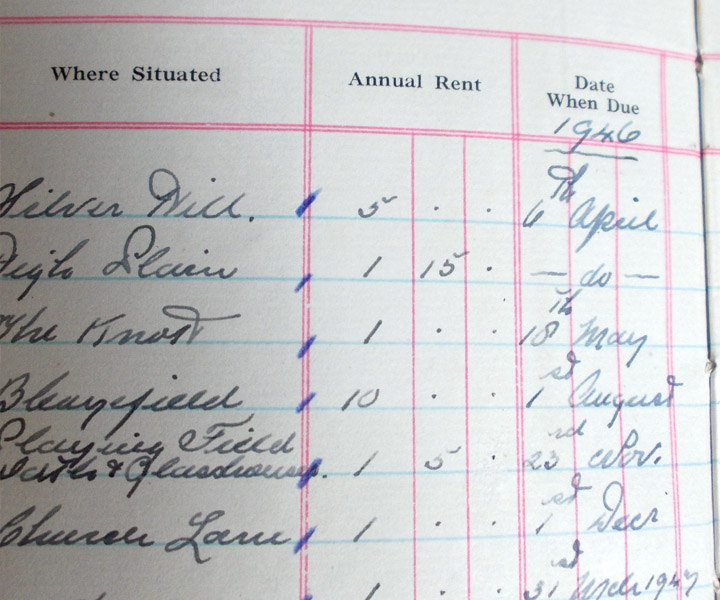 Where Situated Annual Rent Date When Due
1946
Hill. 5 . . 6th April
1 15 . — do —
The Knott 1 . . 18th May
10 . . 1st August
Playing Field
& 1 5 . 23rd Nov.
Church Lane 1 . . 1st Decr
1 . . 31st Mch 1947